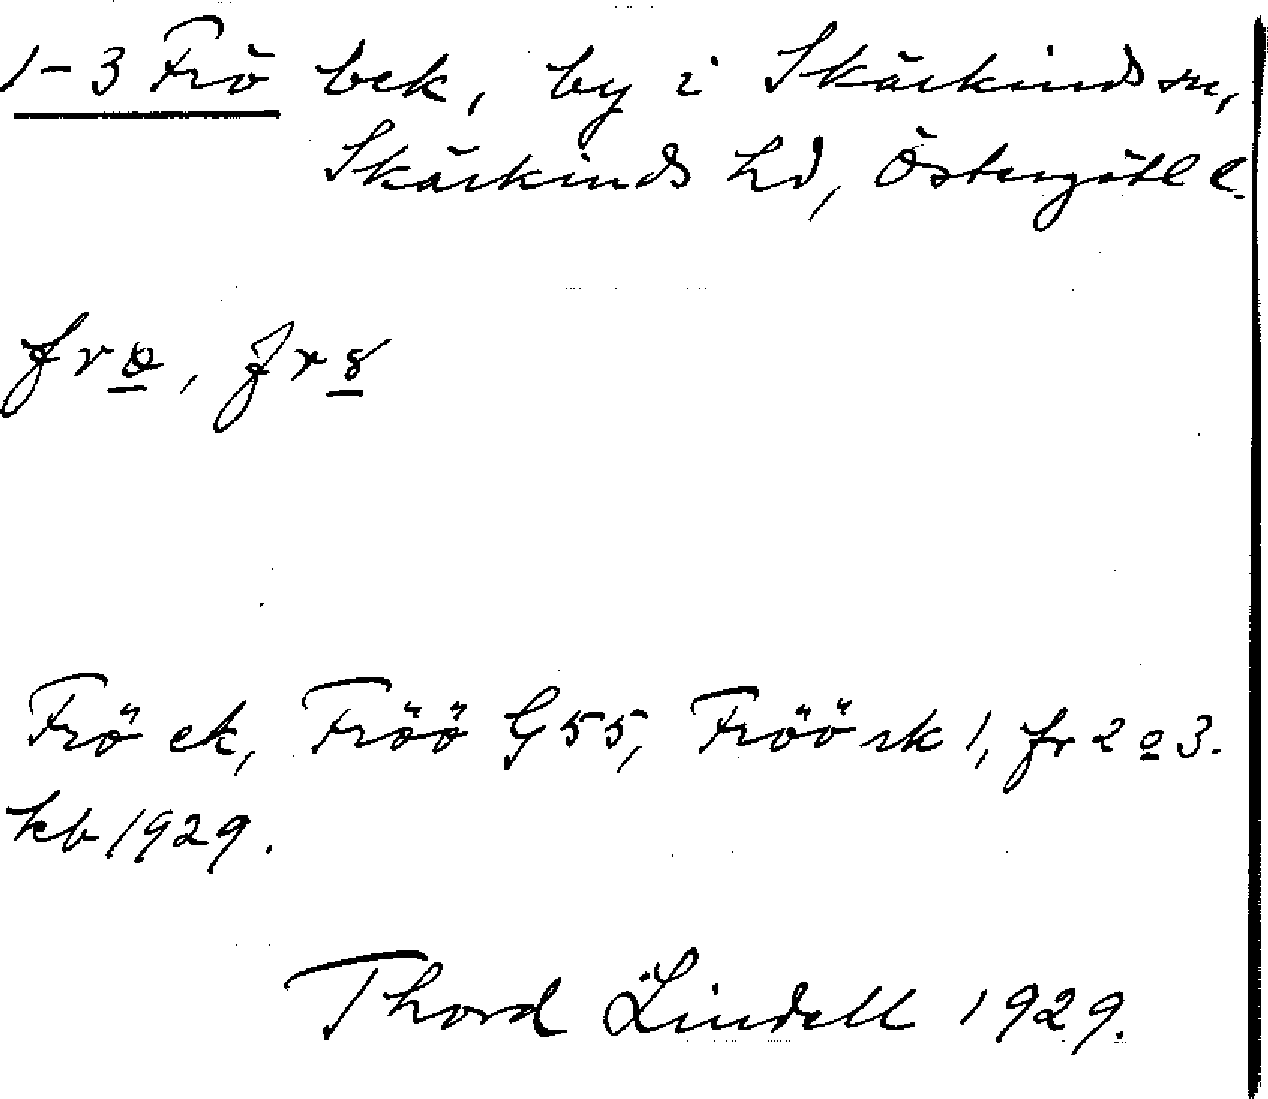 1-3 Frö bek, by i Skärkinds sn,
Skärkinds hd, Östergötl l.
frö, fr
Frö ek, Fröö G55, Fröö rk 1, fr 2 o 3.
kb 1929.
Thord Lindell 1929.